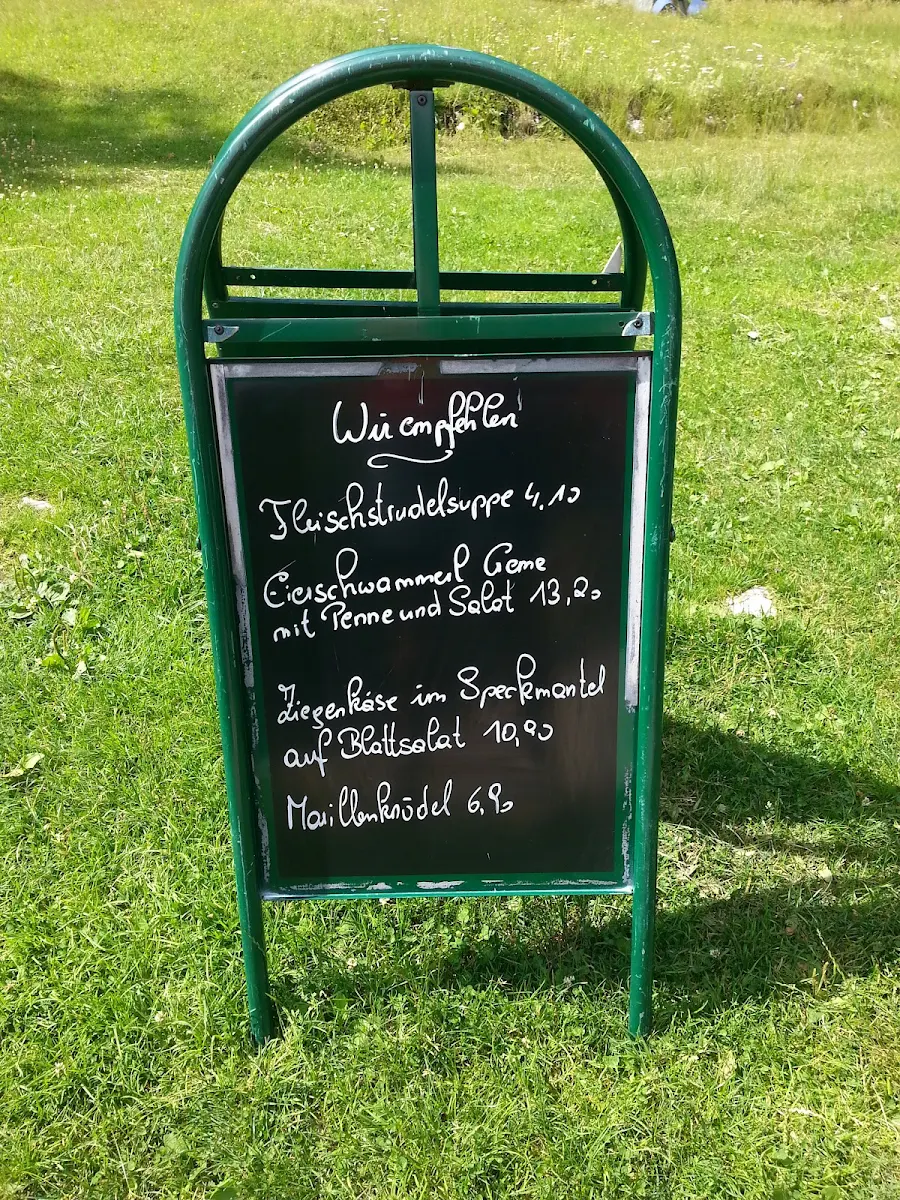 Wir empfehlen
Fleischstrudelsuppe 4,10
Eierschwammerl Creme
mit Penne und Salat 13,20
Ziegenkäse im Speckmantel
auf Blattsalat 10,90
Marillenknödel 6,90